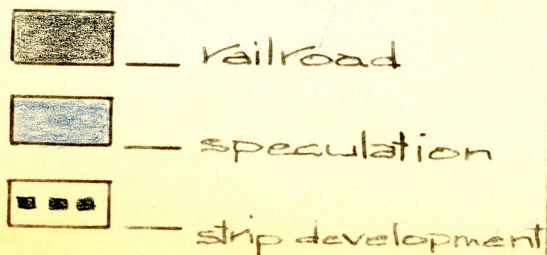 — railroad
— speculation
— strip development